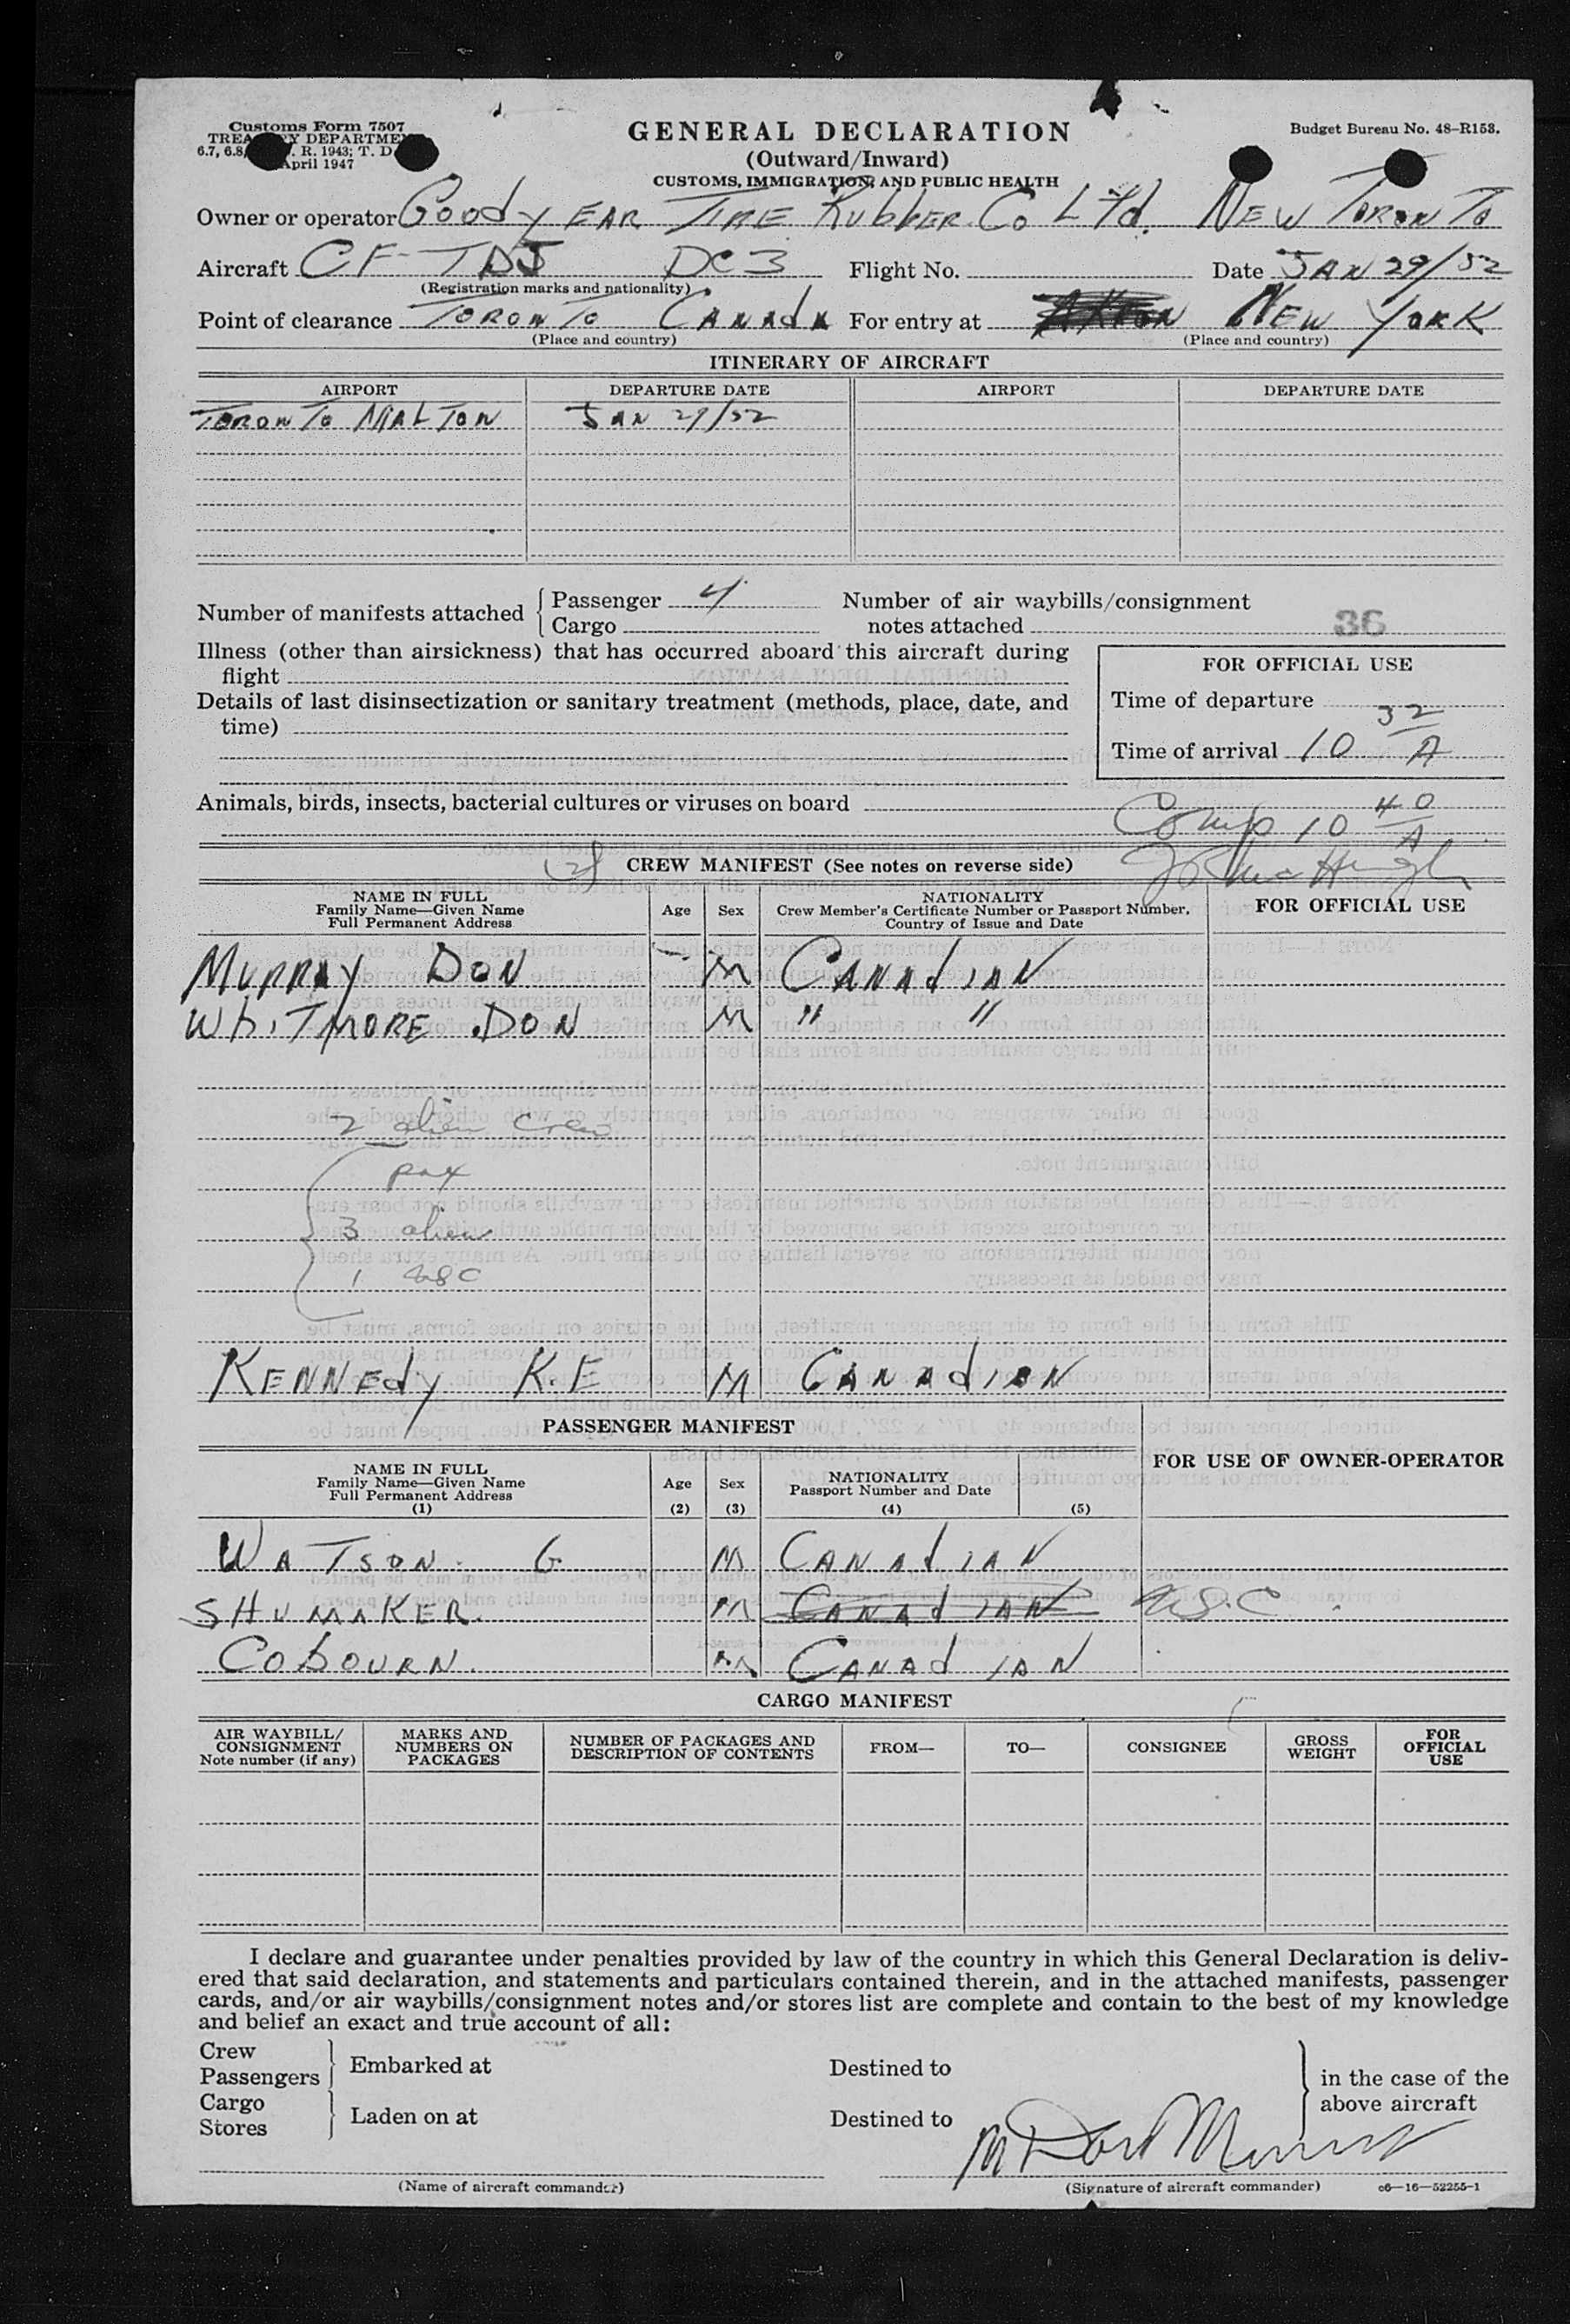 Customs Form 7507
TREASURY DEPARTMENT
6.7, 6.8, R. 1943; T. D.
April 1947
GENERAL DECLARATION
(Outward/Inward)
CUSTOMS, IMMIGRATION, AND PUBLIC HEALTH
Budget Bureau No. 48-R153.
Owner or operator GoodyEAR TIRE RubbER Co LTd. NEW TORONTO
Aircraft CF-TDJ DC3 Flight No. Date JAN 29/52
(Registration marks and nationality)
Point of clearance TORONTO CANAdA For entry at AKRON NEW YORK
(Place and country) (Place and country)
ITINERARY OF AIRCRAFT
AIRPORT DEPARTURE DATE AIRPORT DEPARTURE DATE
TORONTO MALTON JAN 29/52
Number of manifests attached Passenger 4 Cargo
Number of air waybills/consignment notes attached
36
Illness (other than airsickness) that has occurred aboard this aircraft during
flight
Details of last disinsectization or sanitary treatment (methods, place, date, and
time)
FOR OFFICIAL USE
Time of departure
Time of arrival 10 32/A
Animals, birds, insects, bacterial cultures or viruses on board
Comp 10 40/A
CREW MANIFEST (See notes on reverse side)
NAME IN FULL
Family Name—Given Name
Full Permanent Address
Age
Sex
NATIONALITY
Crew Member's Certificate Number or Passport Number,
Country of Issue and Date
FOR OFFICIAL USE
MURRAY DON M CANAdIAN
WhiTMORE DON M " "
2 alien crew
pax
3 alien
1 USC
KENNEdy K.E M CANAdIAN
PASSENGER MANIFEST
FOR USE OF OWNER-OPERATOR
NAME IN FULL
Family Name—Given Name
Full Permanent Address
(1)
Age
(2)
Sex
(3)
NATIONALITY
Passport Number and Date
(4) (5)
WATSON. G. M CANAdIAN
SHUMAKER. M CANAdIAN USC
CObOURN. M CANAdIAN
CARGO MANIFEST
AIR WAYBILL/
CONSIGNMENT
Note number (if any)
MARKS AND
NUMBERS ON
PACKAGES
NUMBER OF PACKAGES AND
DESCRIPTION OF CONTENTS
FROM—
TO—
CONSIGNEE
GROSS
WEIGHT
FOR
OFFICIAL
USE
I declare and guarantee under penalties provided by law of the country in which this General Declaration is deliv-
ered that said declaration, and statements and particulars contained therein, and in the attached manifests, passenger
cards, and/or air waybills/consignment notes and/or stores list are complete and contain to the best of my knowledge
and belief an exact and true account of all:
Crew
Passengers Embarked at Destined to
Cargo
Stores Laden on at Destined to
in the case of the
above aircraft
M Don Murray
(Name of aircraft commander) (Signature of aircraft commander) c6—16—52255-1